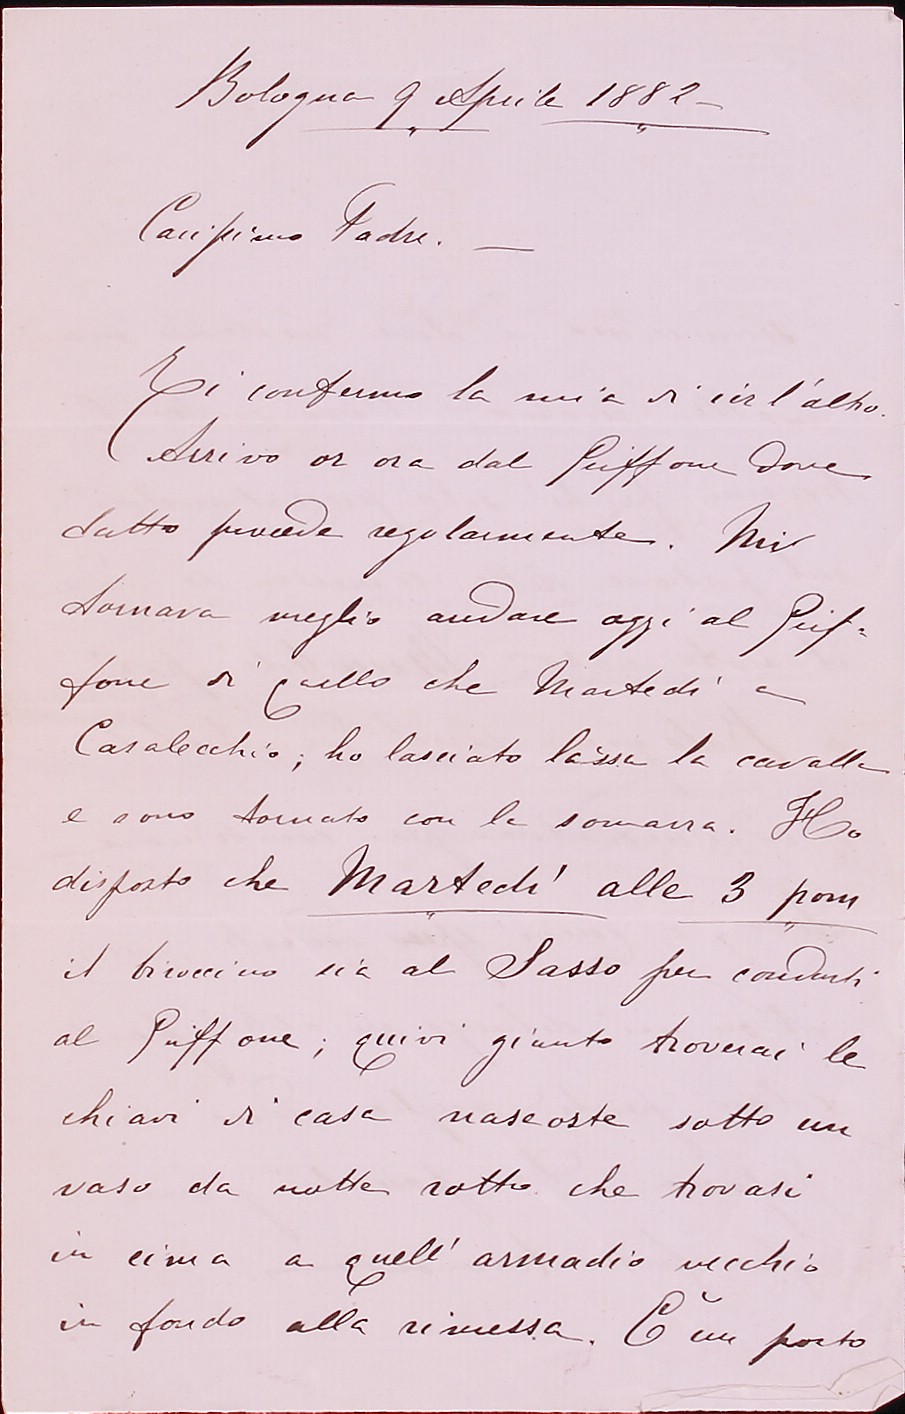 Bologna 9 Aprile 1882
Carissimo Padre. —
Ti confermo la mia di ier l'altro.
Arrivo or ora dal Puffone dove
tutto procede regolarmente. Mi
tornava meglio andare oggi al Puf-
fone di quello che Martedì a
Casalecchio; ho lasciato lassù la cavalla
e sono tornato con la somarra. Ho
disposto che Martedì alle 3 pom
il biroccino sia al Sasso per condurti
al Puffone; quivi giunto troverai le
chiavi di casa nascoste sotto un
vaso da notte rotto che trovasi
in cima a quell'armadio vecchio
in fondo alla rimessa. È un posto